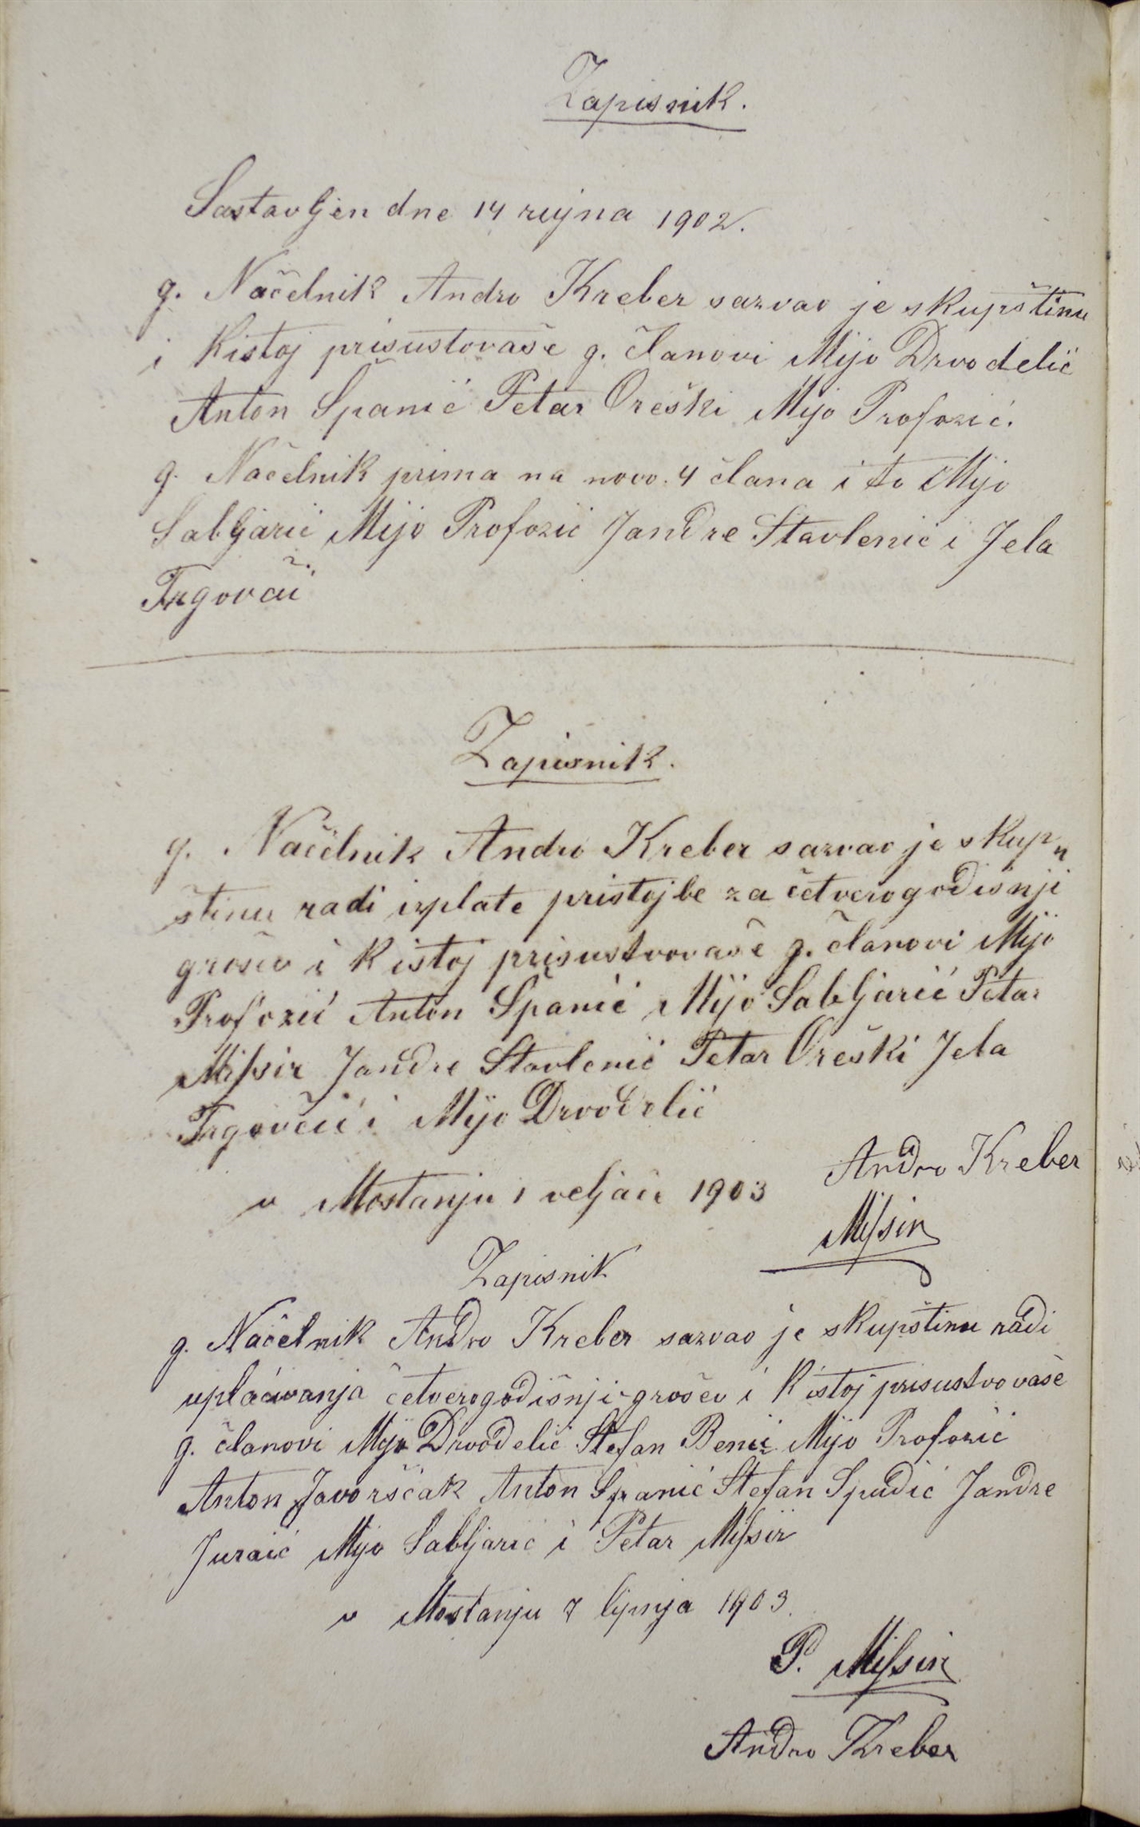 Zapisnik.
Sastavljen dne 14 rujna 1902.
g. Načelnik Andro Kreber sazvao je skupštinu
i kistoj prisustovaše g. članovi Mijo Drvodelić
Anton Španić Petar Oreški Mijo Profozić.
g. Načelnik prima na novo. 4 člana i to Mijo
Sabljarić Mijo Profozić Jandre Stavlenić i Jela
Trgovčić
Zapisnik.
g. Načelnik Andro Kreber sazvao je skup„
štinu radi izplate pristojbe za četverogodišnji
grošev i kistoj prisustvovaše g. članovi Mijo
Profozić Anton Španić Mijo Sabljarić Petar
Miſsir Jandre Stavlenić Petar Oreški Jela
Trgovčić i Mijo Drvodelić
u Mostanju 1 veljače 1903
Andro Kreber
Miſsir
Zapisnik
g. Načelnik Andro Kreber sazvao je skupštinu radi
uplaćivanja četverogodišnji grošev i kistoj prisustvovaše
g. članovi Mijo Drvodelić Stefan Benić Mijo Profozić
Anton Javorščak Anton Španić Stefan Spudić Jandre
Juraić Mijo Sabljarić i Petar Miſsir
u Mostanju 7 lipnja 1903.
P. Miſsir
Andro Kreber